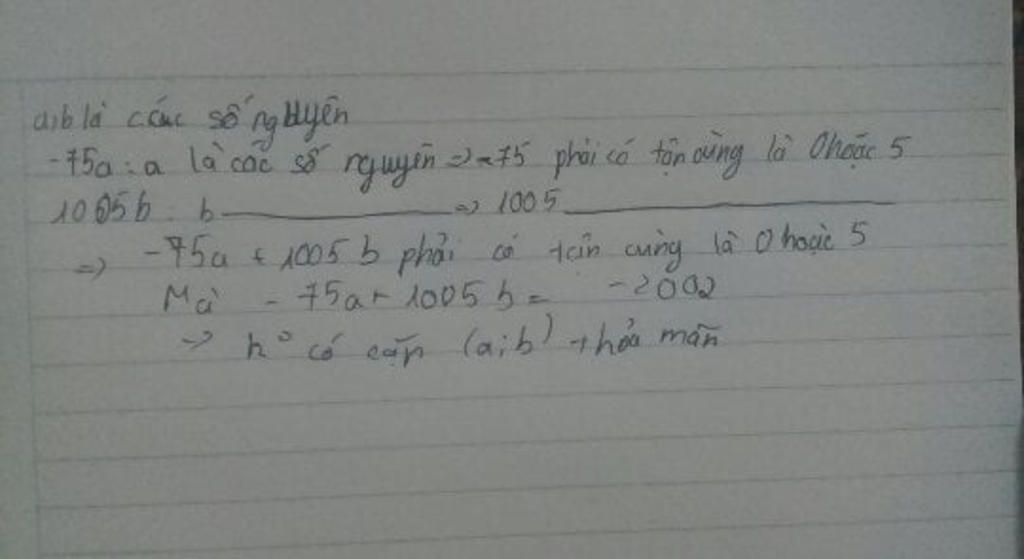 a,b là các số nguyên
-75a : a là các số nguyên => -75 phải có tận cùng là 0 hoặc 5
1005b : b ——— => 1005 ———
=> -75a + 1005b phải có tận cùng là 0 hoặc 5
Mà - 75a + 1005b = -2002
-> k° có cặp (a;b) thỏa mãn